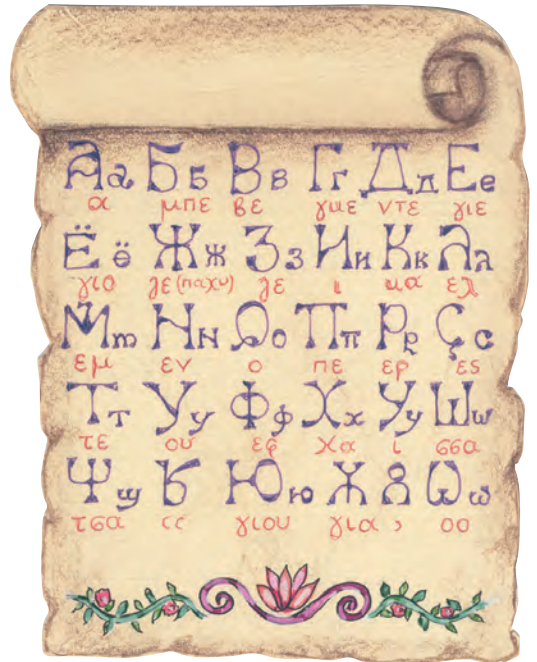 Аа Бб Вв Гг Дд Ее
α μπε βε γκε ντε γιε
Ёё Жж Зз Ии Кк Лл
γιο ζε (παχυ) ζε ι κα ελ
Мм Нн Оо Пп Рр Сс
εμ εν ο πε ερ ες
Тт Уу Фф Хх Уу Шш
τε ου εφ χα ι σσα
Юю Ѫ Ѡѡ
τσα γιου για οο